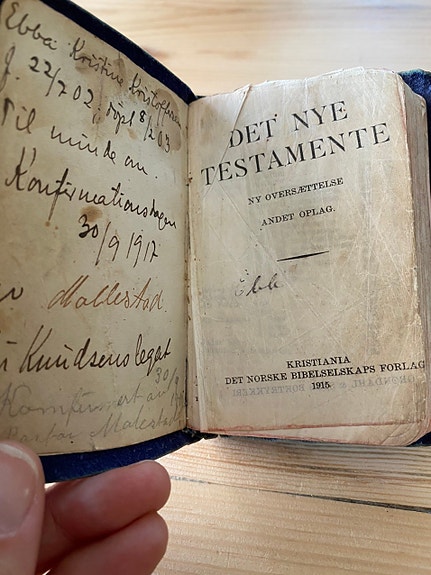 Ebba Kristine Kristoffersen
f. 22/7 02, døpt 8/2 03
Til minde om
Konfirmationsdagen
30/9 1917
Mollestad
Knudsens legat
30/9
Konfirmert av
Pastor Molestad
DET NYE
TESTAMENTE
NY OVERSÆTTELSE
ANDET OPLAG.
Ebb
KRISTIANIA
DET NORSKE BIBELSELSKAPS FORLAG
1915